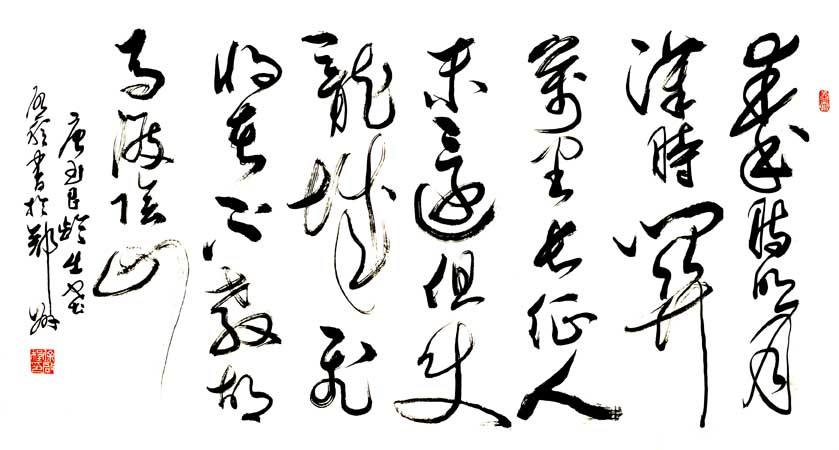 秦時明月
漢時關
萬里長征人
未還但使
龍城飛
將在不教胡
馬渡陰山
唐王昌齡出塞
書於鄭州